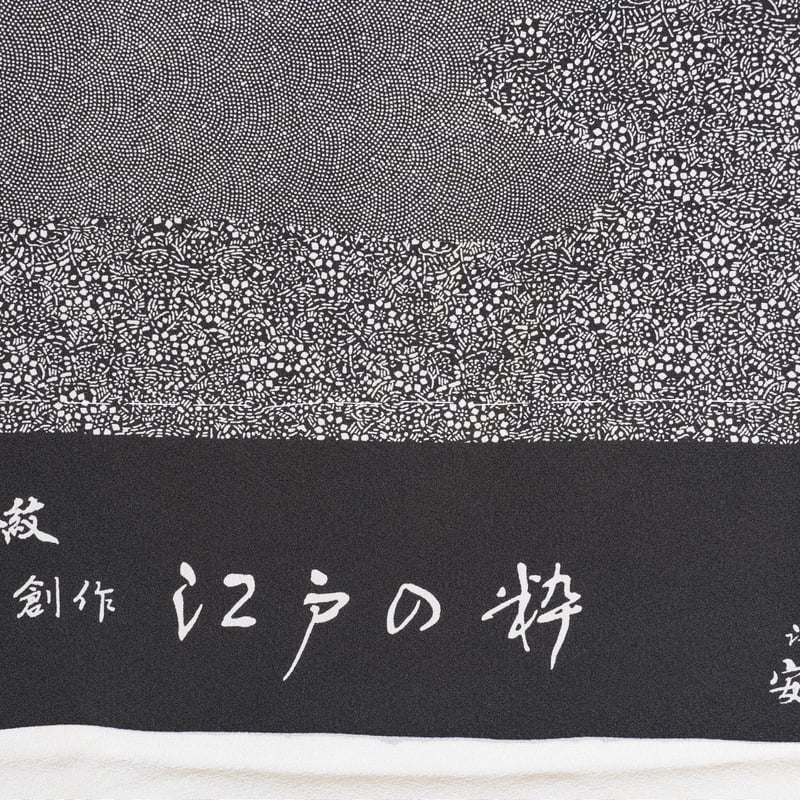 創作
江戸の粋
安